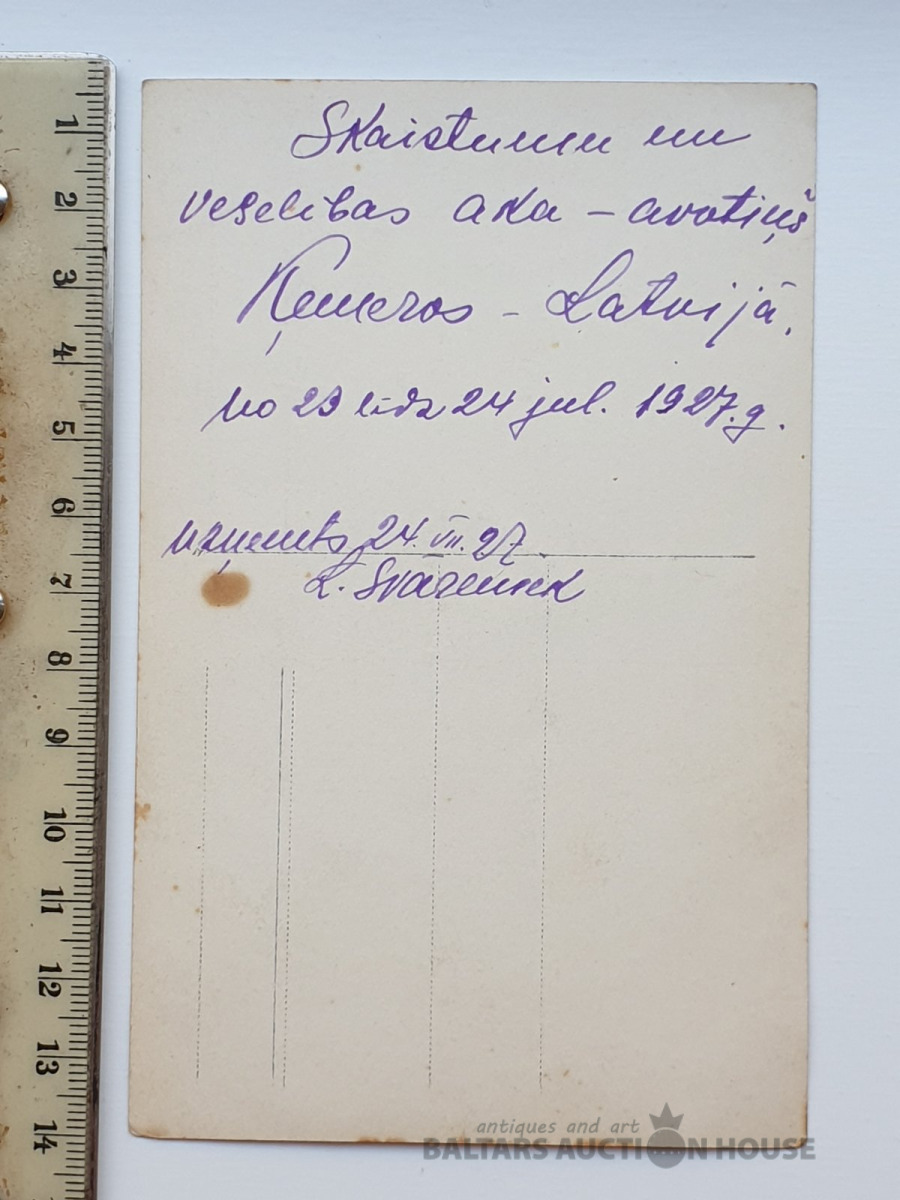 Skaistumu un
veselibas aka – avotiņš
Ķemeros – Latvijā.
no 23 līdz 24 jul. 1927.g.
uzņemts 24. VII. 27
L.
1
2
3
4
5
6
7
8
9
10
11
12
13
14
antiques and art
BALTARS AUCTION HOUSE